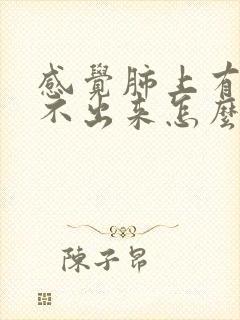 感覺肺上有
不出来怎麼
陳子昂